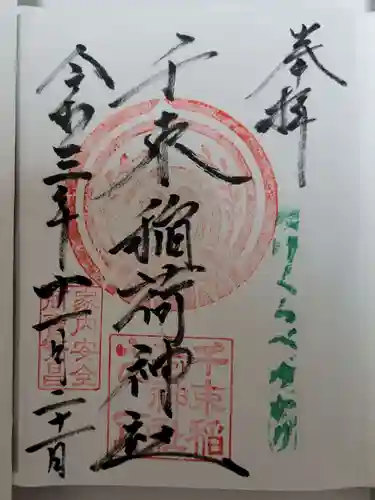 奉拝
たけくらべゆかり
千束稲荷神社
千束稲
令和三年十一月二十一日
家内安全